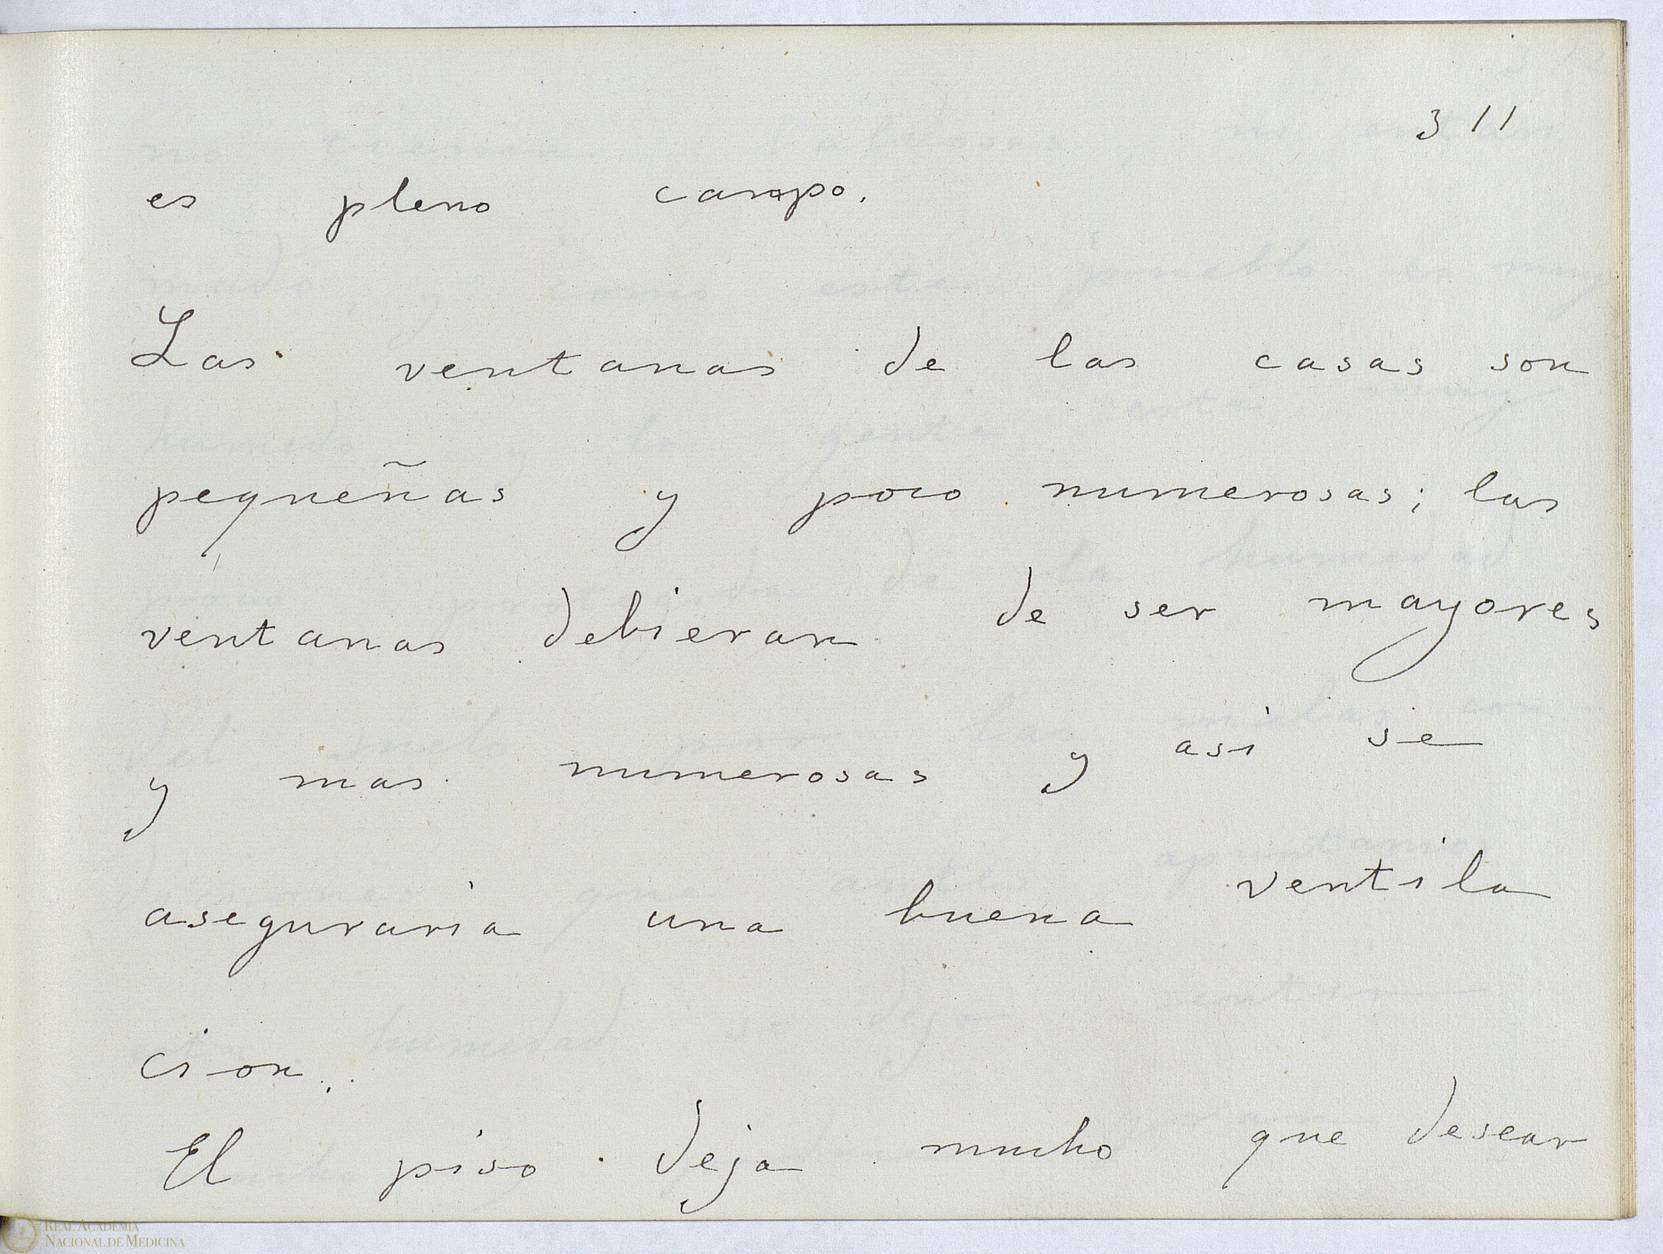 311
es pleno campo.
Las ventanas de las casas son
pequeñas y poco numerosas; las
ventanas debieran de ser mayores
y mas numerosas y asi se
aseguraria una buena ventila
cion.
El piso deja mucho que desear
REAL ACADEMIA
NACIONAL DE MEDICINA